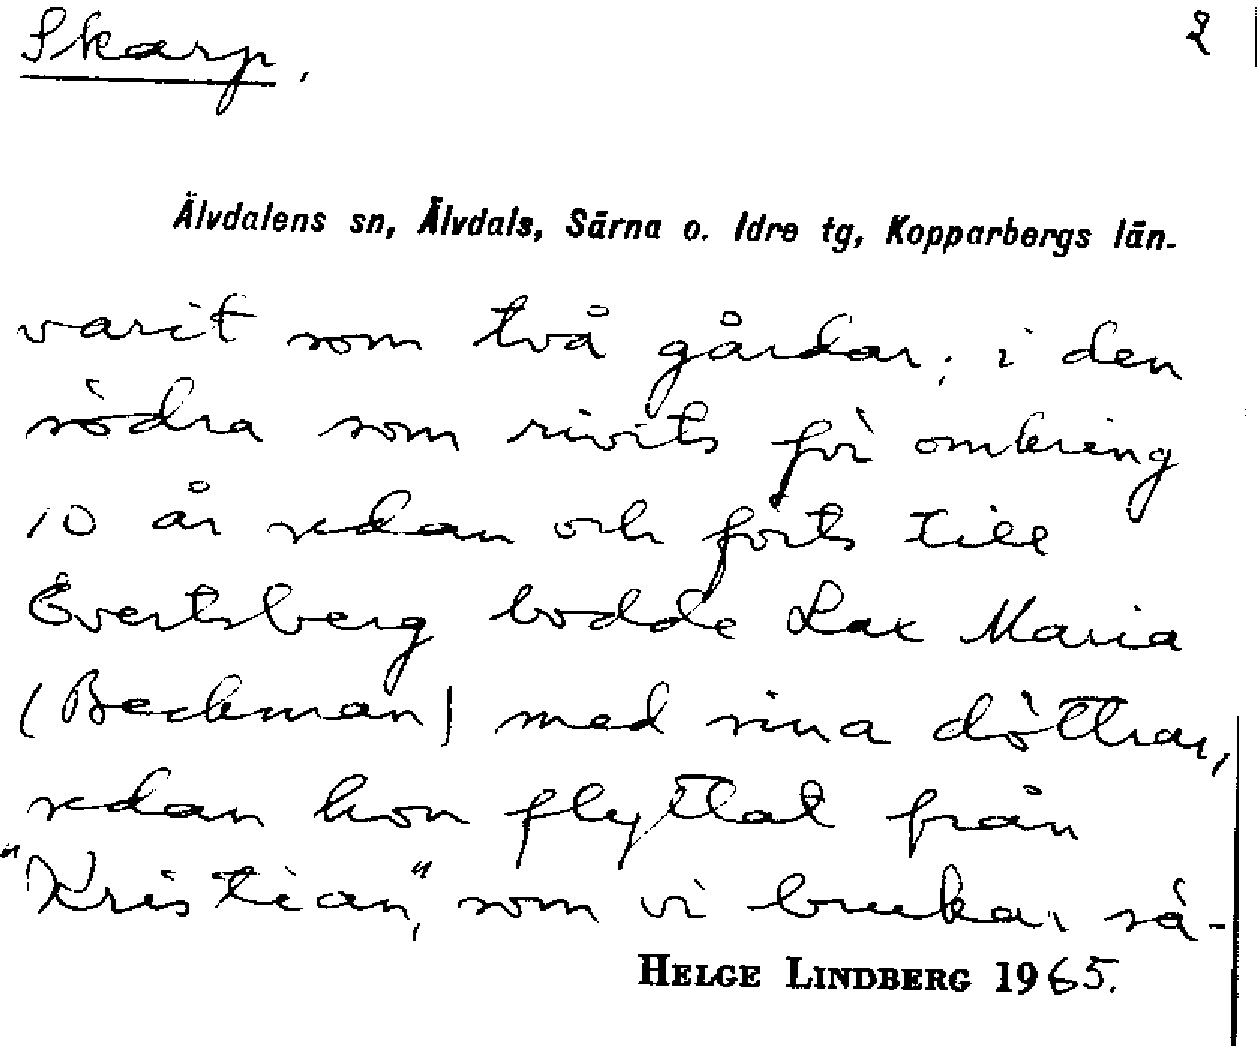 Skarp. 2
Älvdalens sn, Älvdals, Särna o. Idre tg, Kopparbergs län.
varit som två gårdar; i den
södra som rivits för omkring
10 år sedan och förts till
Evertsberg bodde Lax Maria
(Beckman) med sina döttrar,
sedan hon flyttat från
"Kristian", som vi brukar sä-
HELGE LINDBERG 1965.